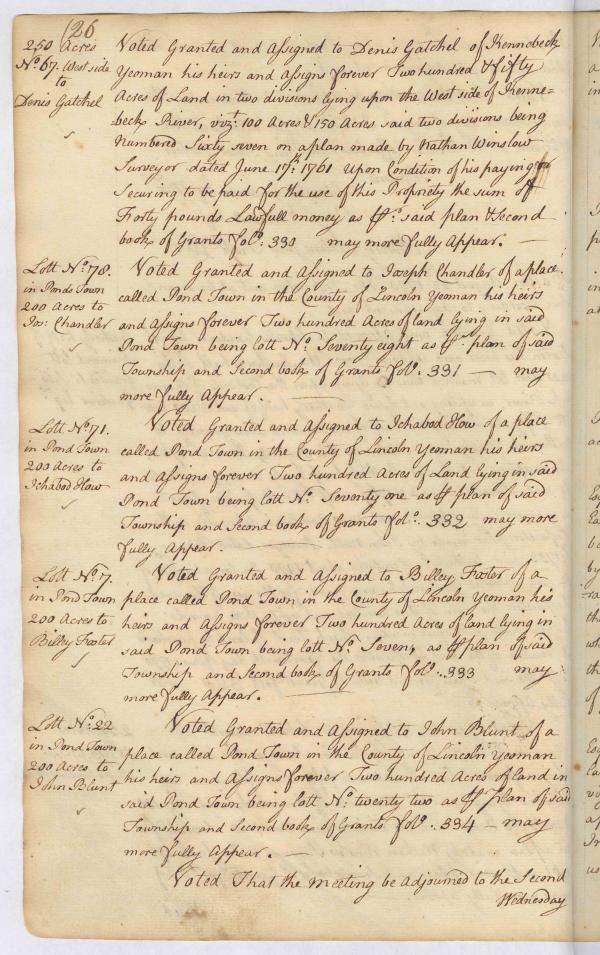 (26
250 Acres
No. 67. West side
to
Denis Gatchel
Voted Granted and Assigned to Denis Gatchel of Kennebeck
Yeoman his heirs and Assigns forever Two hundred & fifty
Acres of Land in two divisions lying upon the West side of Kenne=
beck River, vizt. 100 Acres & 150 Acres said two divisions being
Numbered Sixty seven on a plan made by Nathan Winslow
Surveyor dated June 17th. 1761 Upon Condition of his paying or
Securing to be paid for the use of this Propriety the sum of
Forty pounds Lawfull money as pr. said plan & Second
book of Grants folo. 330 may more fully Appear. —
Lott No. 78.
in Ponds Town
200 Acres to
Jos: Chandler
Voted Granted and Assigned to Joseph Chandler of a place
called Pond Town in the County of Lincoln Yeoman his heirs
and Assigns forever Two hundred Acres of land lying in said
Pond Town being lott No. Seventy eight as pr. plan of said
Township and Second book of Grants folo. 331 — may
more fully Appear. —
Lott No. 71.
in Pond Town
200 Acres to
Ichabod How
Voted Granted and Assigned to Ichabod How of a place
called Pond Town in the County of Lincoln Yeoman his heirs
and Assigns forever Two hundred Acres of Land lying in said
Pond Town being lott No. Seventy one as pr plan of said
Township and Second book of Grants folo. 332 may more
fully Appear. —
Lott No. 7.
in Pond Town
200 Acres to
Billey Foster
Voted Granted and Assigned to Billey Foster of a
place called Pond Town in the County of Lincoln Yeoman his
heirs and Assigns forever Two hundred Acres of land lying in
said Pond Town being lott No. Seven, as pr plan of said
Township and Second book of Grants folo. 333 may
more fully Appear. —
Lott No. 22
in Pond Town
200 Acres to
John Blunt
Voted Granted and Assigned to John Blunt of a
place called Pond Town in the County of Lincoln Yeoman
his heirs and Assigns forever Two hundred Acres of land in
said Pond Town being lott No. twenty two as pr plan of said
Township and Second book of Grants folo. 334 — may
more fully Appear. —
Voted That the meeting be adjourned to the Second
Wednesday